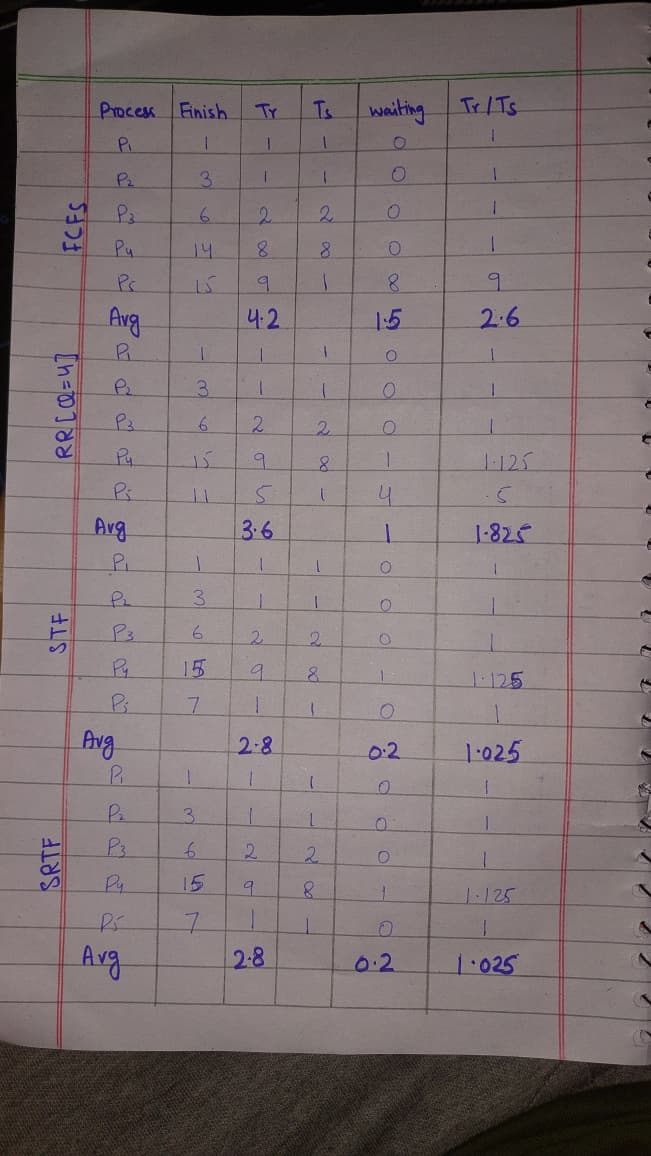 Process Finish Tr Ts waiting Tr/Ts
FCFS
P1 1 1 1 0 1
P2 3 1 1 0 1
P3 6 2 2 0 1
P4 14 8 8 0 1
P5 15 9 1 8 9
Avg 4.2 1.5 2.6
RR[Q=4]
P1 1 1 1 0 1
P2 3 1 1 0 1
P3 6 2 2 0 1
P4 15 9 8 1 1.125
P5 11 5 1 4 .5
Avg 3.6 1 1.825
STF
P1 1 1 1 0 1
P2 3 1 1 0 1
P3 6 2 2 0 1
P4 15 9 8 1 1.125
P5 7 1 1 0 1
Avg 2.8 0.2 1.025
SRTF
P1 1 1 1 0 1
P2 3 1 1 0 1
P3 6 2 2 0 1
P4 15 9 8 1 1.125
P5 7 1 1 0 1
Avg 2.8 0.2 1.025